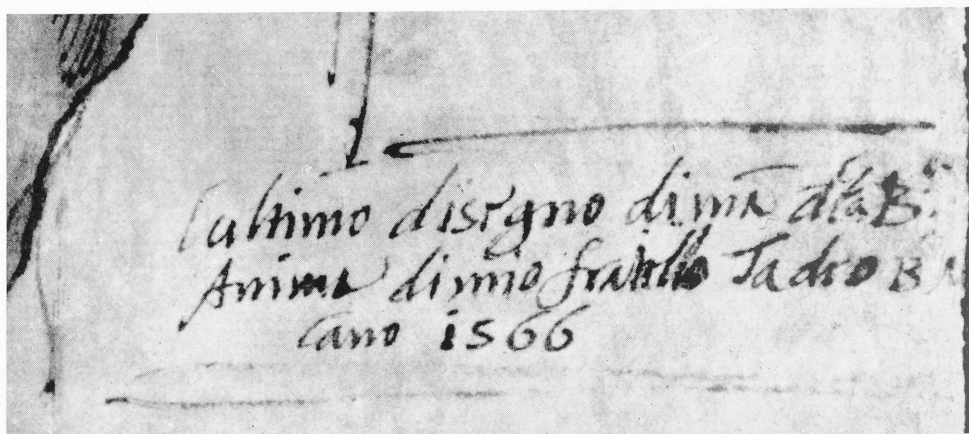 l'ultimo disegno di mā dla B.
Anima di mio fratello Tadeo B
lano 1566